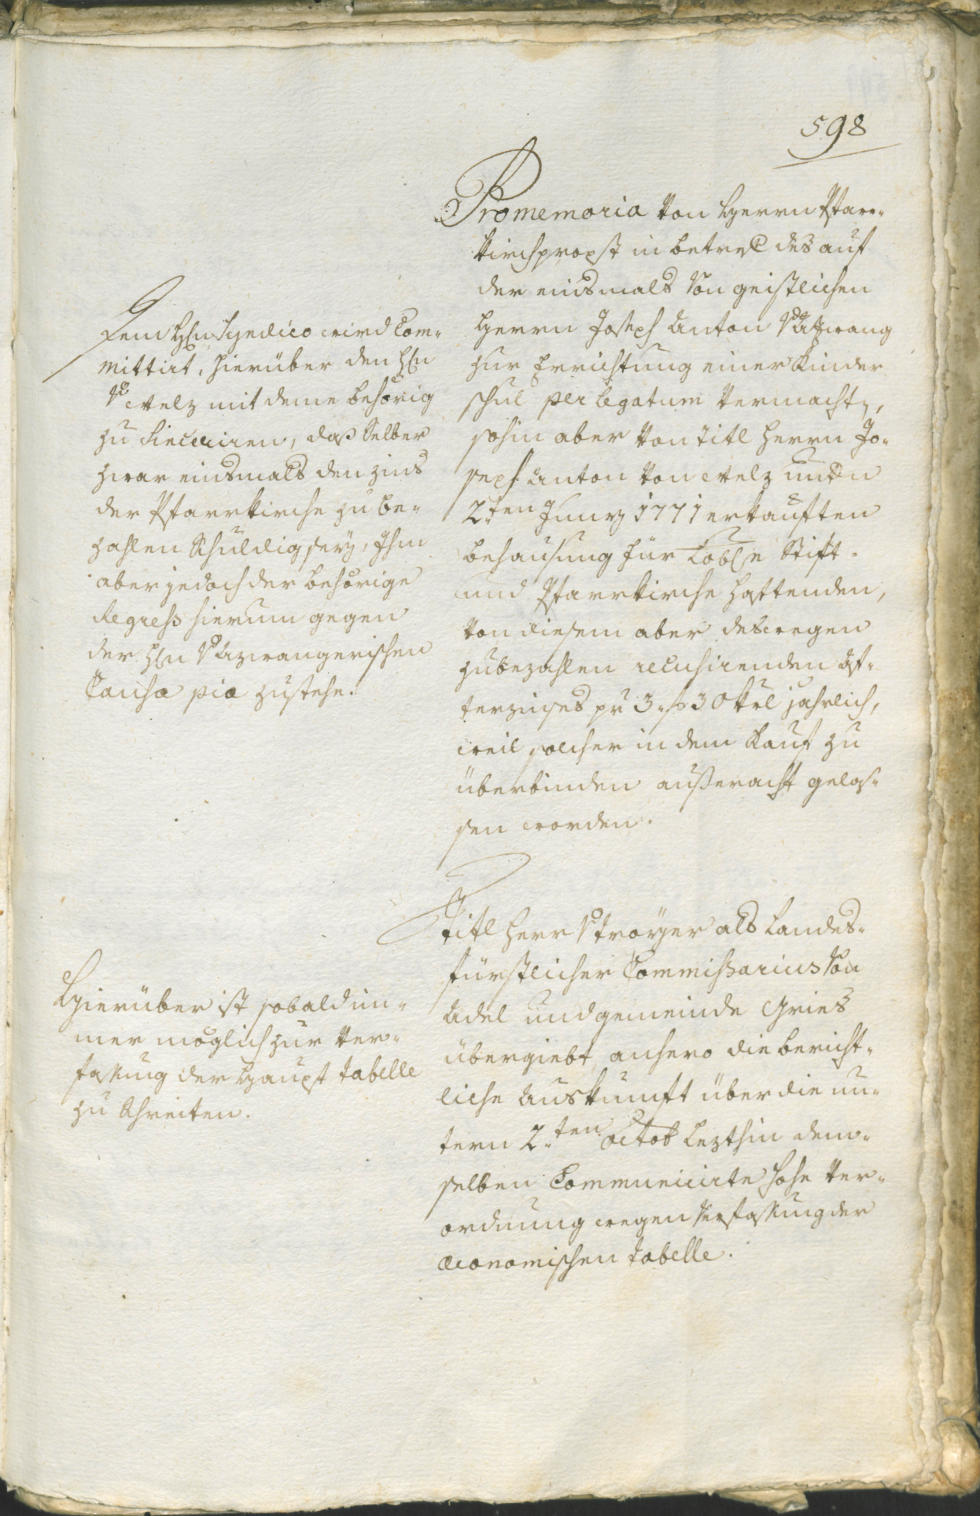 598
Promemoria von Herrn Pfarr-
kirchpropst in betref des auf
der einsmals von geistlichen
Herrn Joseph Anton v Azwang
zur Errichtung einer Kinder
schul per legatum vermacht,
sohin aber von Titl Herrn Jo-
seph Anton von Welz untern
2.ten Juny 1771 erkauften
behausung für Löbl. Stift-
und Pfarrkirche haftenden,
von diesem aber deswegen
zubezahlen recusirenden Af-
terzinses pr 3 f 30 Krl jährlich,
weil solcher in dem Kauf zu
überbinden ausseracht gelas-
sen worden.
Dem Hrn Syndico wird Com-
mittirt, hierüber den Hrn
v Welz mit deme behörig
zu sinceriren, dass Selber
zwar einsmals den zins
der Pfarrkirche zu be-
zahlen schuldig sey, Ihm
aber jedoch der behörige
Regress hierum gegen
der Hrn v Azwangerischen
Causa pia zustehe.
Titl Herr v Tröyer als Landes-
fürstlicher Commissarius von
Adel und gemeinde Gries
übergiebt anhero die bericht-
liche Auskunft über die un-
tern 2.ten octob lezthin dem-
selben Communicirte hohe Ver-
ordnung wegen Verfassung der
œconomischen tabelle.
Hierüber ist sobald im-
mer möglich zur Ver-
fassung der Haupt tabelle
zu schreiten.